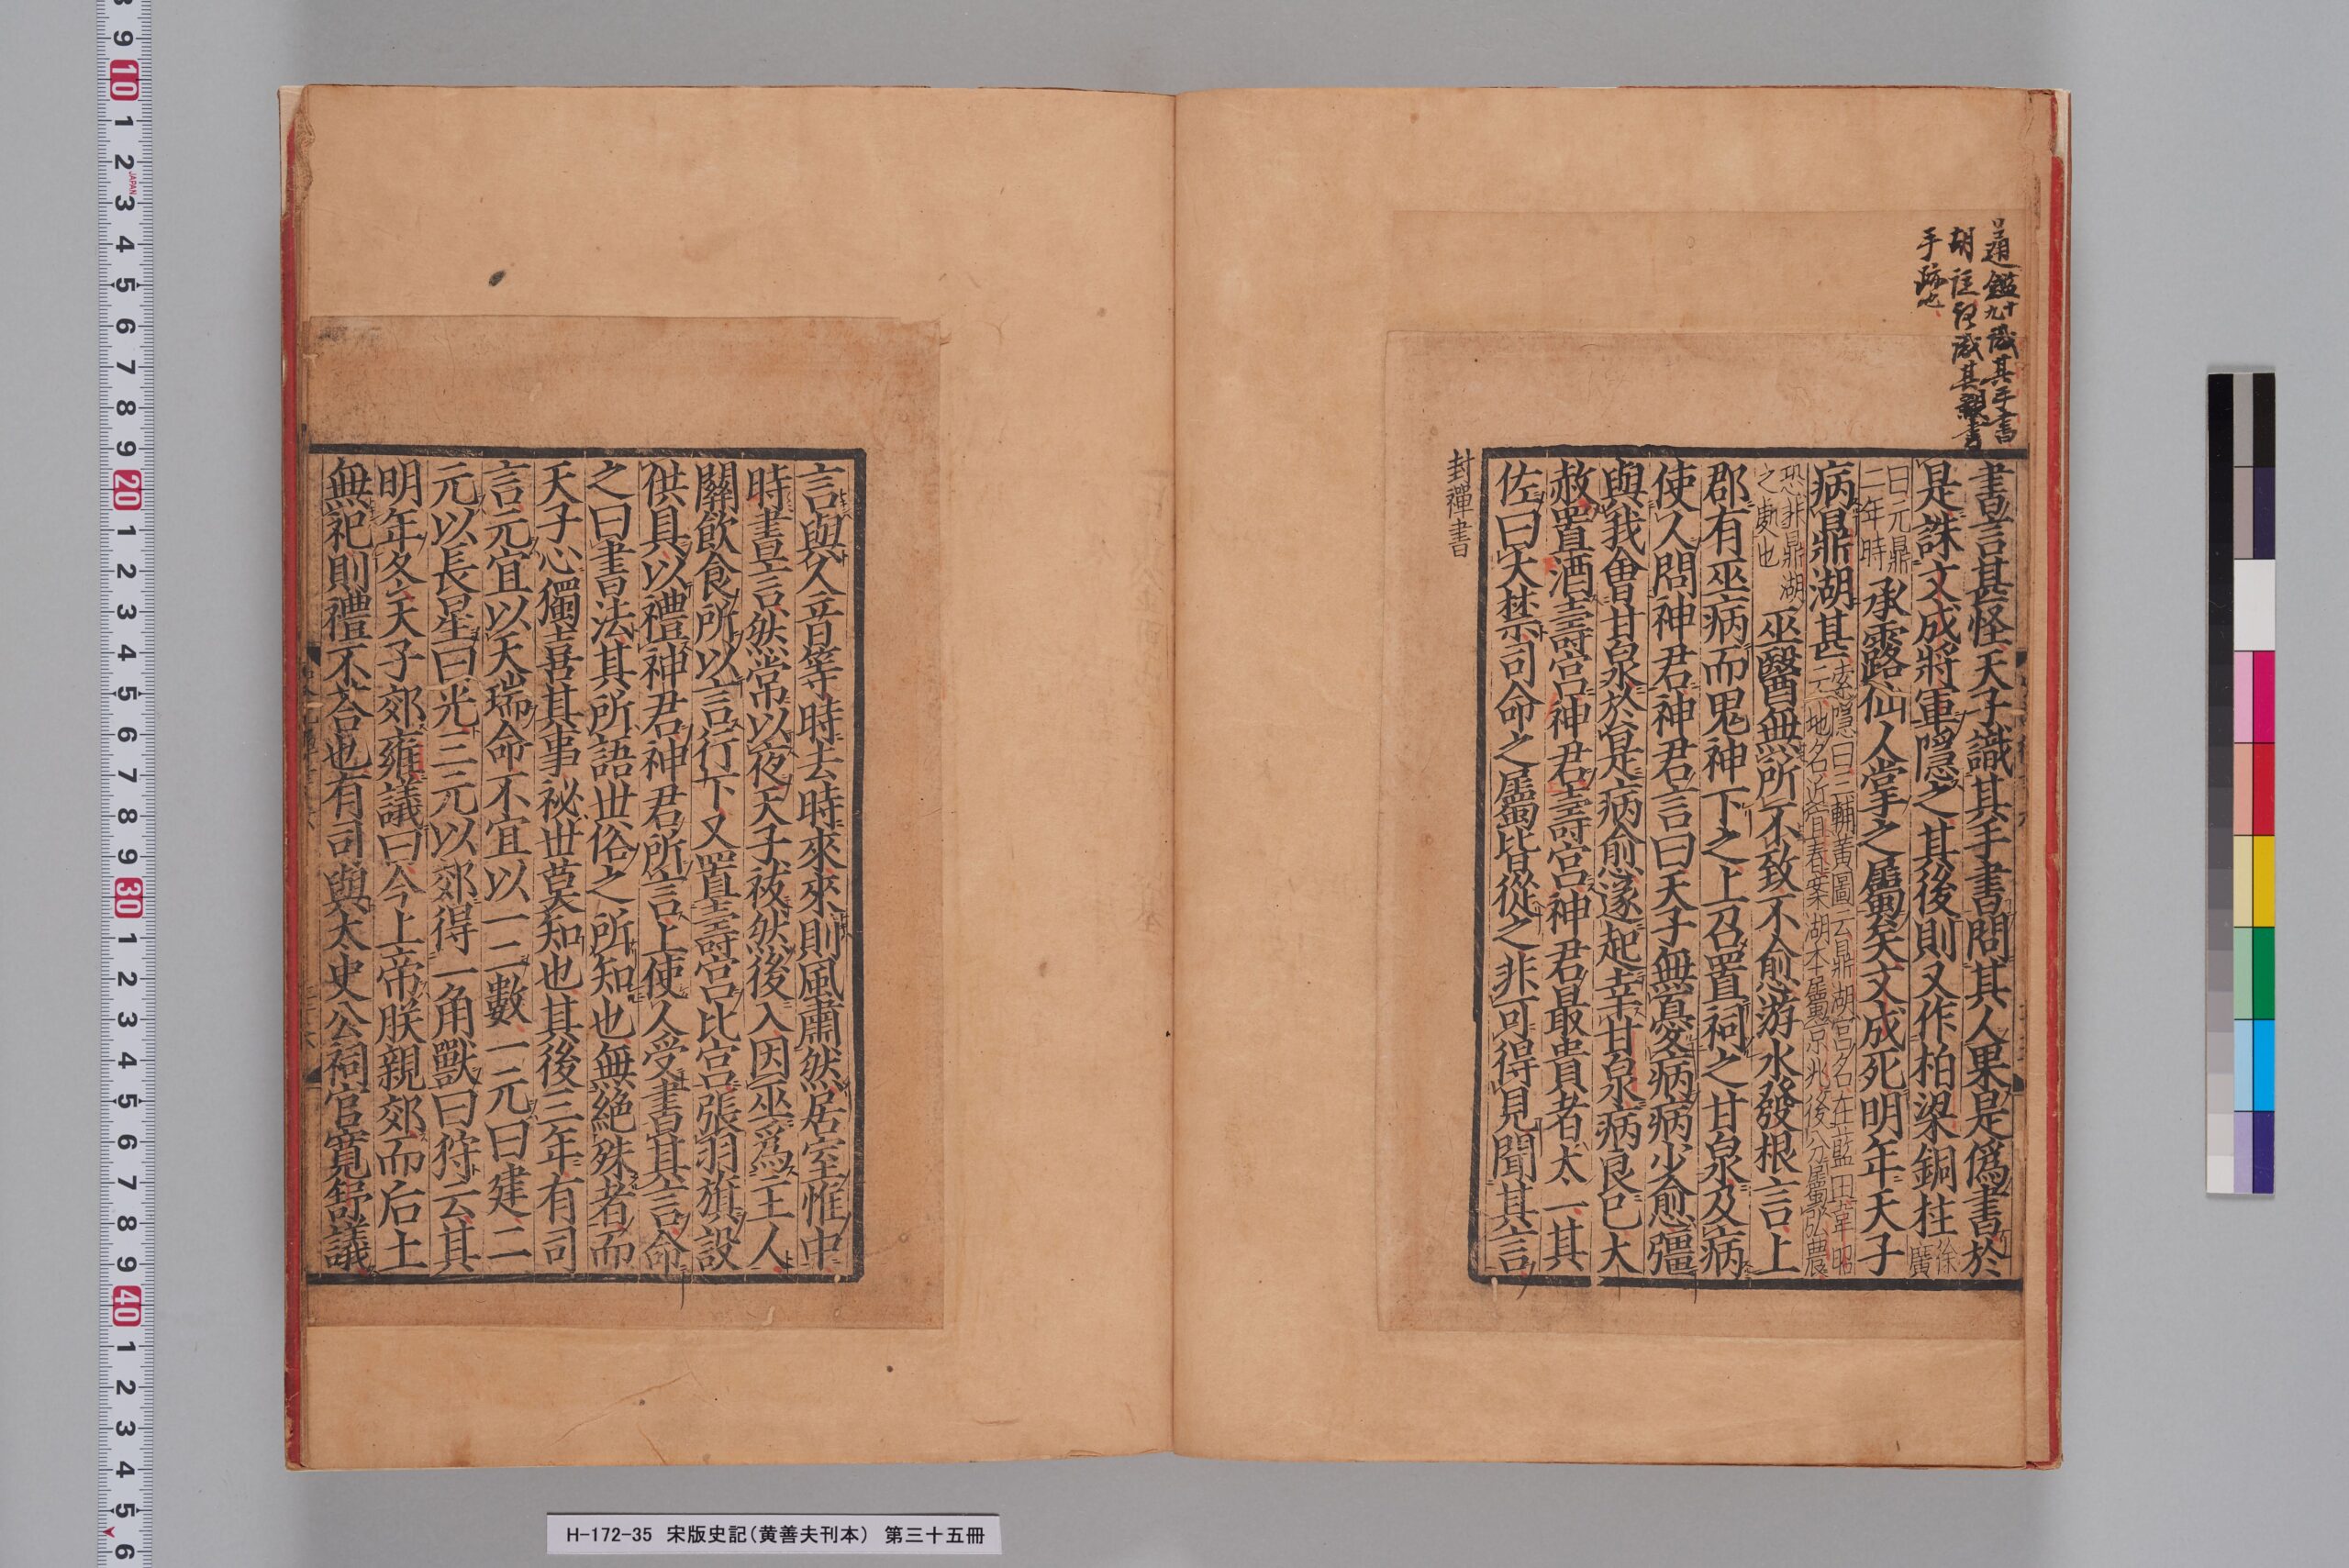 通鑑十九識其手書
胡註
手跡也
書言甚怪天子識其手書問其人果是僞書於
是誅文成將軍隱之其後則又作柏梁銅柱徐廣
曰元鼎二年時承露仙人掌之屬矣文成死明年天子
病鼎湖甚索隱曰三輔黄圖云鼎湖宮名在藍田韋昭云地名近宜春案湖本屬京兆後分屬弘農
恐非鼎湖之處也巫醫無所不致不愈游水發根言上
郡有巫病而鬼神下之上召置祠之甘泉及病
使人問神君神君言曰天子無憂病病少愈彊
與我會甘泉於是病愈遂起幸甘泉病良已大
赦置酒壽宮神君壽宮神君最貴者太一其
佐曰大禁司命之屬皆從之非可得見聞其言
封禪書
言與人音等時去時來來則風肅然居室惟中
時晝言然常以夜天子祓然後入因巫爲主人
關飲食所以言行下又置壽宮北宮張羽旗設
供具以禮神君神君所言上使人受書其言命
之曰書法其所語世俗之所知也無絶殊者而
天子心獨喜其事祕世莫知也其後三年有司
言元宜以天瑞命不宜以一二數一元曰建二
元以長星曰光三元以郊得一角獸曰狩云其
明年冬天子郊雍議曰今上帝朕親郊而后土
無祀則禮不荅也有司與太史公祠官寬舒議
H-172-35 宋版史記(黄善夫刊本) 第三十五冊